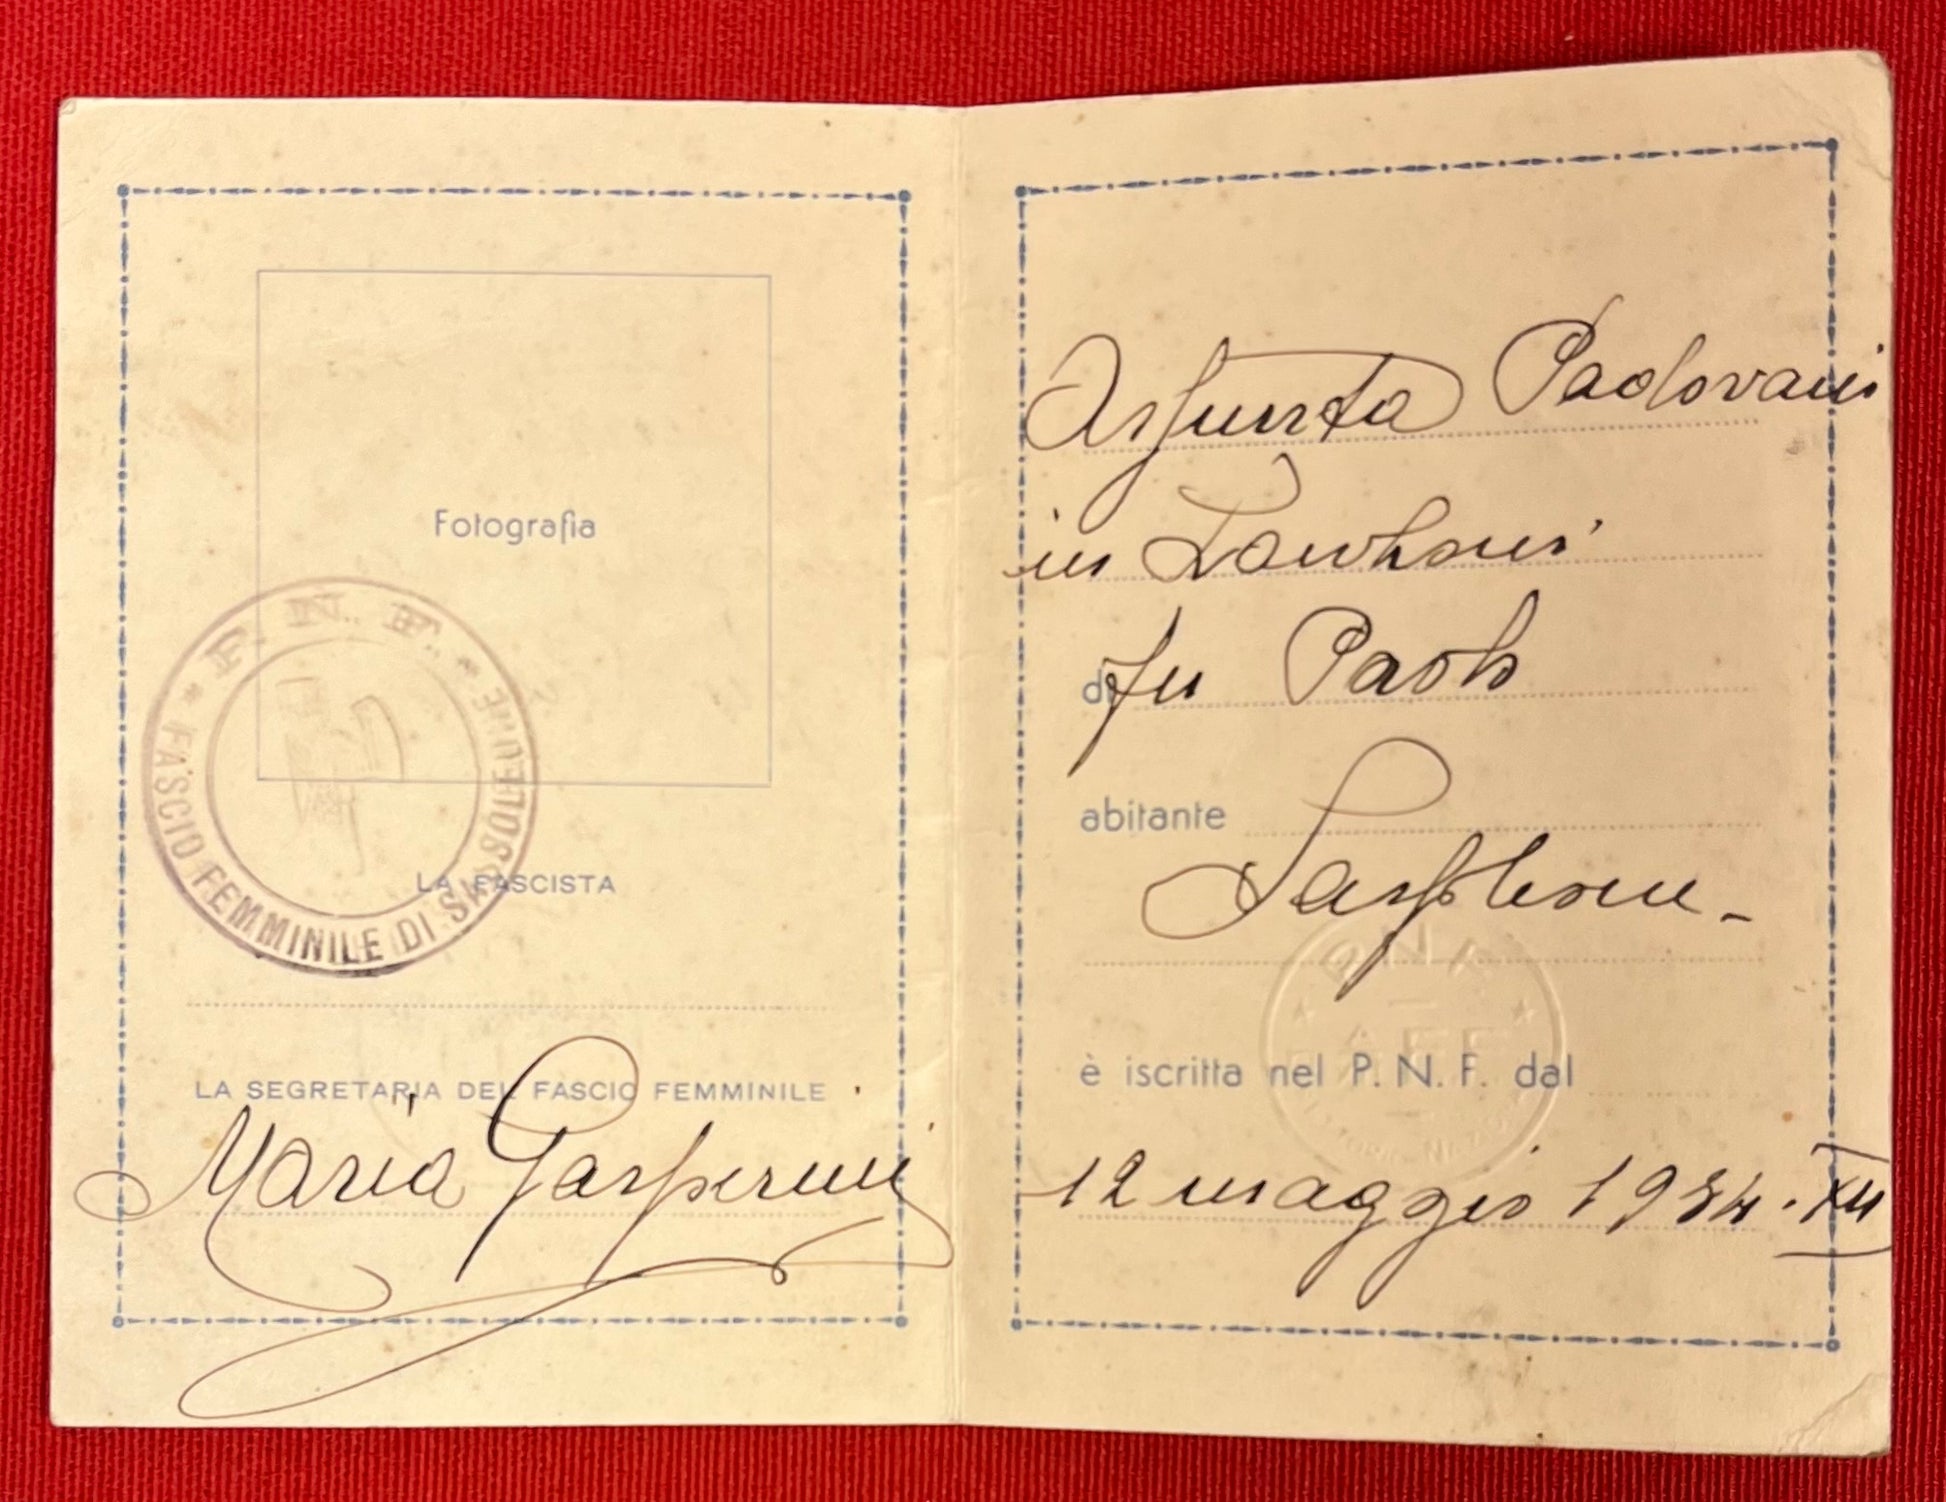 Fotografia
P. N. F.
FASCIO FEMMINILE DI SANSOLEUNE
LA FASCISTA
LA SEGRETARIA DEL FASCIO FEMMINILE
Maria Gasperini
Assunta Padovani
in
di fu Paolo
abitante
è iscritta nel P. N. F. dal
12 maggio 1934. XII
P N F